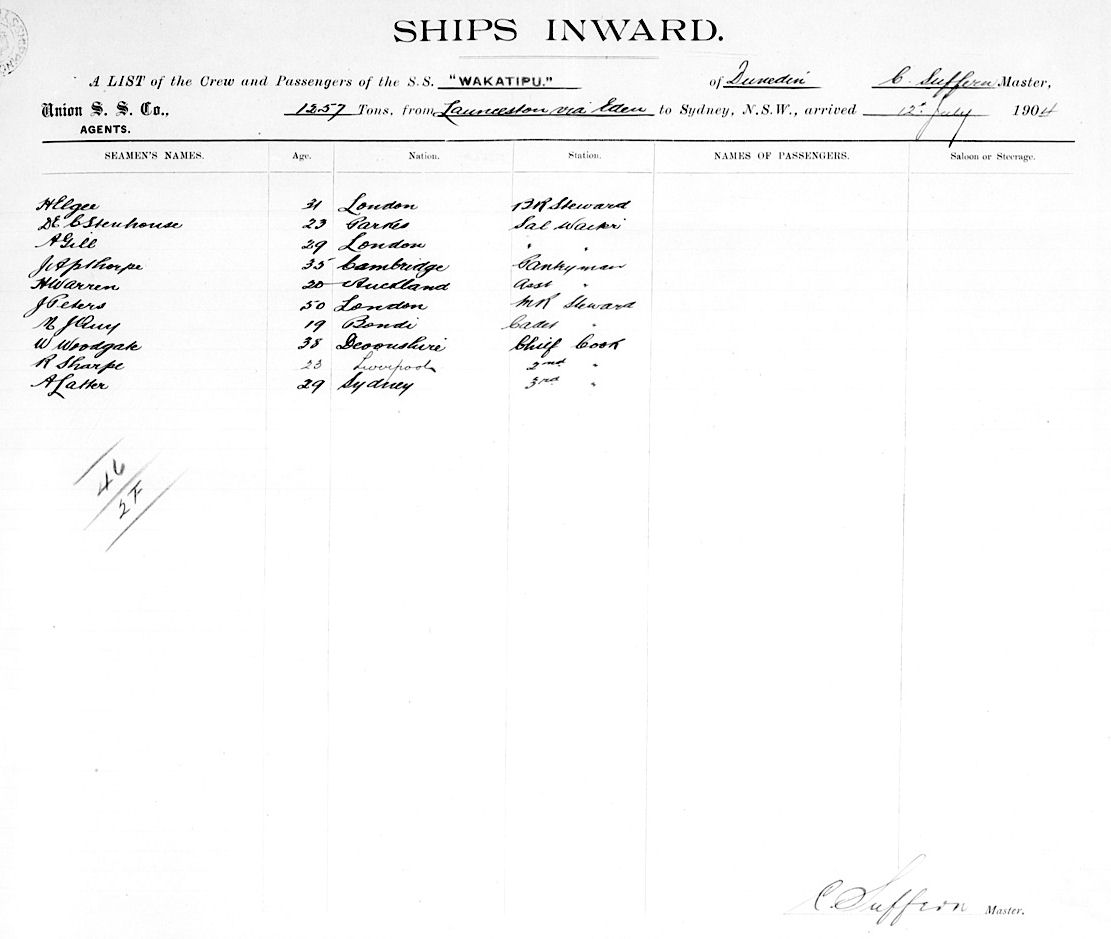 SHIPS INWARD.
A LIST of the Crew and Passengers of the S.S. "WAKATIPU." of Dunedin C. Suffern Master,
Union S. S. Co., 1257 Tons, from Launceston via Eden to Sydney, N.S.W., arrived 12th July 1904
AGENTS.
SEAMEN'S NAMES. Age. Nation. Station. NAMES OF PASSENGERS. Saloon or Steerage.
H Elger 31 London BR Steward
D E C Stenhouse 23 Parkes Sal Waiter
A Gill 29 London " "
J Apthorpe 35 Cambridge Pantryman
H Warren 20 Auckland Asst "
J Peters 50 London MR Steward
J 19 Bondi Cadet "
W Woodgate 38 Devonshire Chief Cook
R Sharpe 23 Liverpool 2nd "
A Latter 29 Sydney 3rd "
46
2F
C Suffern Master.